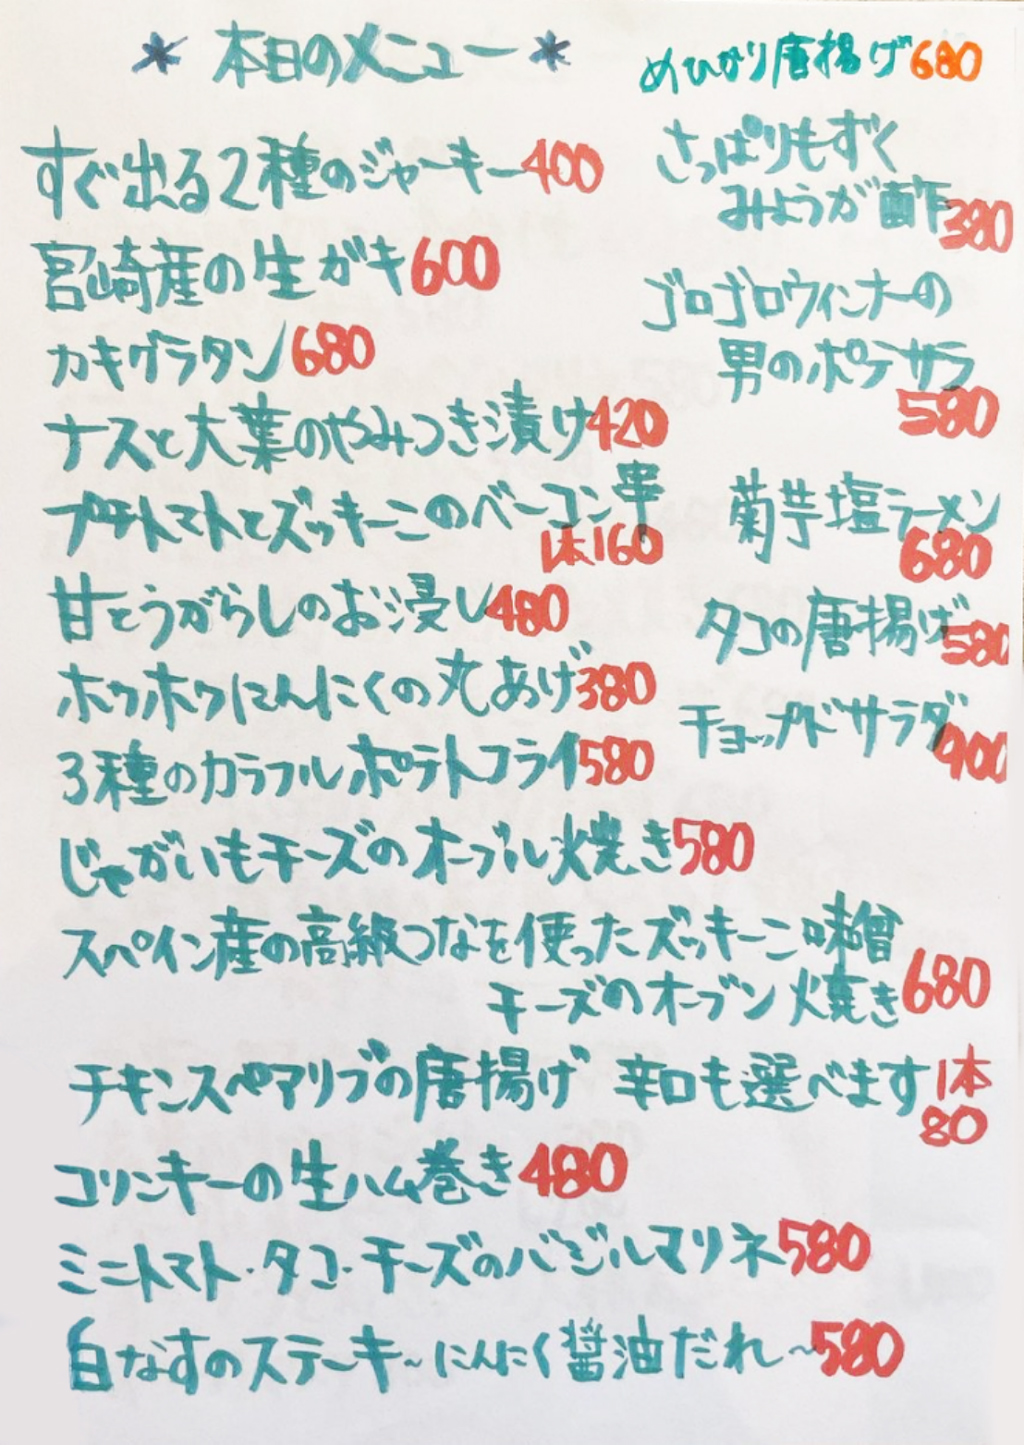 * 本日のメニュー *
すぐ出る2種のジャーキー400
宮崎産の生ガキ600
カキグラタン680
ナスと大葉のやみつき漬け420
プチトマトとズッキーニのベーコン串
1本160
甘とうがらしのお浸し480
ホクホクにんにくの丸あげ380
3種のカラフルポテトフライ580
じゃがいもチーズのオーブン焼き580
スペイン産の高級つなを使ったズッキーニ味噌
チーズのオーブン焼き680
チキンスペアリブの唐揚げ 辛口も選べます1本
80
コリンキーの生ハム巻き480
ミニトマト・タコ・チーズのバジルマリネ580
白なすのステーキ~にんにく醤油だれ~580
めひかり唐揚げ680
さっぱりもずく
みょうが酢380
ゴロゴロウィンナーの
男のポテサラ
580
菊芋塩ラーメン
680
タコの唐揚げ580
チョップドサラダ
900